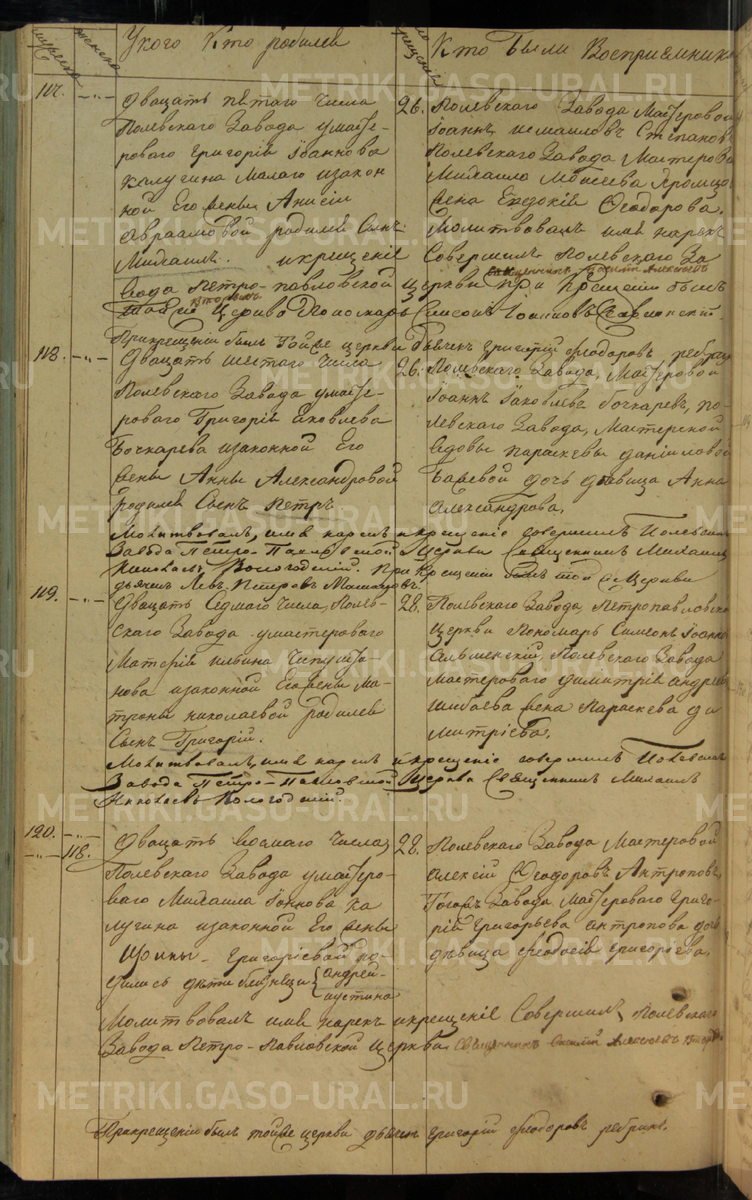 У кого кто родился
Кто были восприемники
117.
Двацать пятаго числа
Полевскаго Завода умасте-
роваго Григорія Іоаннова
Калугина Малаго изакон
ной Его жены Анисіи
Авраамовой родился Сынъ
Михаилъ. икрещеніе
26. Полевскаго Завода Мастеровой
Іоаннъ Измаиловъ Степанов
Полевскаго Завода Мастерова
Михаила Моисеева
жена Евдокія Ѳеодорова.
Молитвовалъ имя нарекъ
Совершилъ Полевскаго За
священникъ Василій Алексеевъ
вода Петро-павловской церкви при Крещеніи былъ
тойже Церкви Пономарь Симеонъ Іоанновъ
Прикрещеніи былъ Тойже церкви Дьячекъ Григорій Ѳеодоровъ ребрин
118.
Двацать шестаго числа
Полевскаго Завода умасте-
роваго Григорія Яковлева
Бочкарева изаконной Его
жены Анны Александровой
родился Сынъ Петръ
26. Полевскаго Завода, Мастеровой
Іоаннъ Яковлевъ бочкаревъ, по-
левскаго Завода, Мастерской
вдовы параскевы даніиловой
дочь дѣвица Анна
Александрова.
Молитвовалъ, имя нарекъ икрещеніе совершилъ Полевскаго
Завода Петро-Павловской Церкви Священникъ Михаилъ
Николаевъ Вологодскій. При Крещеніи былъ той же Церкви
дьячекъ Левъ Петровъ
119.
Двацать Седмаго числа, Полев-
скаго Завода умастероваго
ильина Чипушта-
нова изаконной Его жены Ма-
троны николаевой родился
Сынъ Григорій.
28. Полевскаго Завода, Петропавловско
Церкви Пономарь Симеонъ Іоанно
Полевскаго Завода
мастероваго димитрія андрее
шибаева жена Параскева ди
митріева.
Молитвовалъ, имя нарекъ икрещеніе совершилъ Полевска
Завода Петро-Павловской Церкви Священникъ Михаилъ
Николаевъ Вологодскій.
120.
118.
Двацать восмаго числа,
Полевскаго Завода умастеро-
ваго Михаила Іоаннова Ка
лугина изаконной Его жены
Ирины Григоріевай ро-
дились дѣти близнецы андрей
иустина
28. Полевскаго Завода Мастеровой
Алексій Ѳеодоровъ Антроповъ,
Тогожъ Завода Мастероваго Григо-
рія Григорьева антропова дочь
дѣвица Ѳеодосія григоріева.
Молитвовалъ имя нарекъ икрещеніе Совершилъ, Полевскаго
Завода Петро-Павловской церкви. Священникъ Василій Алексеевъ
Прикрещеніи былъ тойже церкви дьячекъ григорій Ѳеодоровъ ребрин.
METRIKI.GASO-URAL.RU